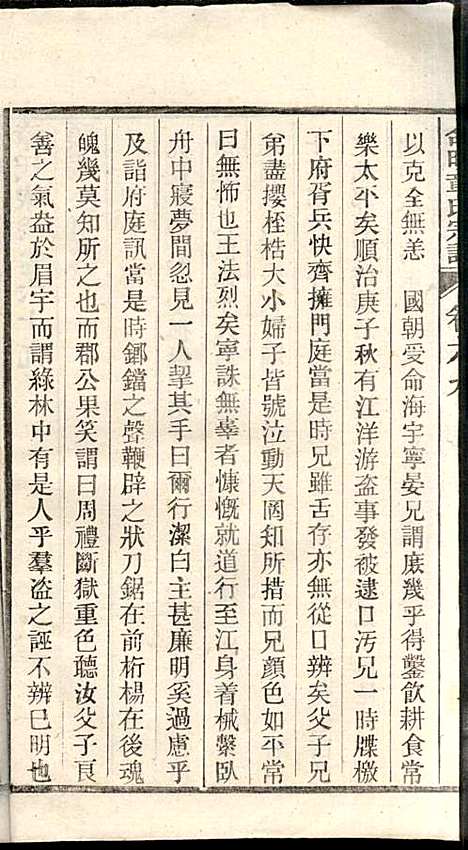 以克全無恙　國朝受命海宇寧晏兄謂庶幾乎得鑿飲耕食常
樂太平矣順治庚子秋有江洋游盜事發被逮口汚兄一時牒檄
下府胥兵快齊擁門庭當是時兄雖舌存亦無從口辨矣父子兄
弟盡攖桎梏大小婦子皆號泣動天罔知所措而兄顏色如平常
曰無怖也王法烈矣寧誅無辜者慷慨就道行至江身着械繫臥
舟中寢夢間忽見一人挈其手曰爾行潔白主甚廉明奚過慮乎
及詣府庭訊當是時鎯鐺之聲鞭辟之狀刀鋸在前桁楊在後魂
魄幾莫知所之也而郡公果笑謂曰周禮斷獄重色聽汝父子良
善之氣盎於眉宇而謂綠林中有是人乎羣盜之誣不辨已明也